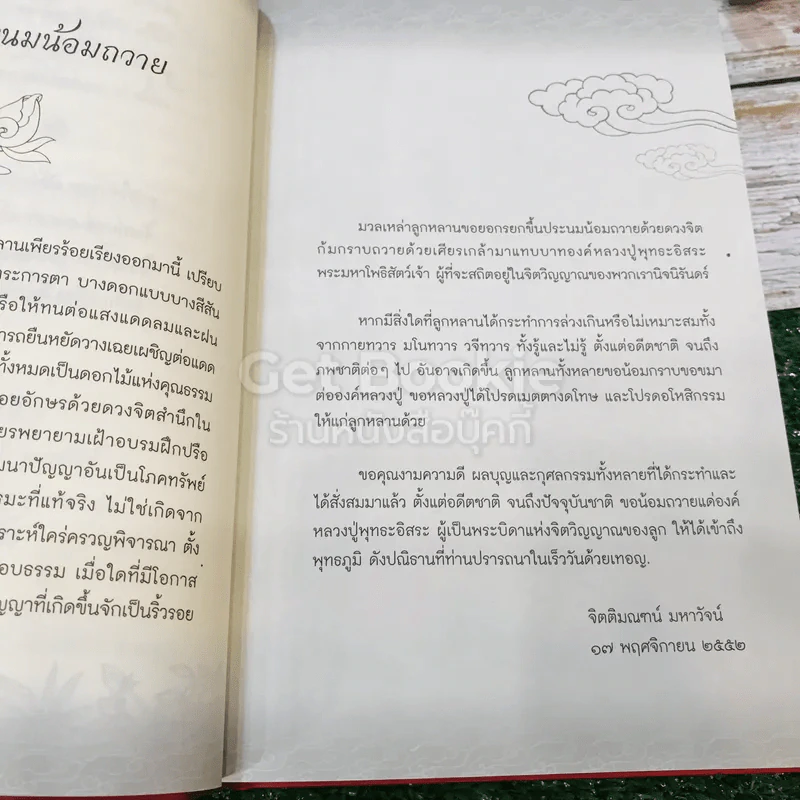 นมน้อมถวาย
ลานเพียรร้อยเรียงออกมานี้ เปรียบ
ระการตา บางดอกแบบบางสีสัน
รือให้ทนต่อแสงแดดลมและฝน
ารถยืนหยัดวางเฉยเผชิญต่อแดด
ทั้งหมดเป็นดอกไม้แห่งคุณธรรม
อยอักษรด้วยดวงจิตสำนึกใน
ยรพยายามเฝ้าอบรมฝึกปรือ
มนาปัญญาอันเป็นโภคทรัพย์
รมะที่แท้จริง ไม่ใช่เกิดจาก
ราะห์ใคร่ครวญพิจารณา ตั้ง
อบธรรม เมื่อใดที่มีโอกาส
ญญาที่เกิดขึ้นจักเป็นริ้วรอย
มวลเหล่าลูกหลานขอยอกรยกขึ้นประนมน้อมถวายด้วยดวงจิต
ก้มกราบถวายด้วยเศียรเกล้ามาแทบบาทองค์หลวงปู่พุทธะอิสระ
พระมหาโพธิสัตว์เจ้า ผู้ที่จะสถิตอยู่ในจิตวิญญาณของพวกเรานิจนิรันดร์
หากมีสิ่งใดที่ลูกหลานได้กระทำการล่วงเกินหรือไม่เหมาะสมทั้ง
จากกายทวาร มโนทวาร วจีทวาร ทั้งรู้และไม่รู้ ตั้งแต่อดีตชาติ จนถึง
ภพชาติต่อๆ ไป อันอาจเกิดขึ้น ลูกหลานทั้งหลายขอน้อมกราบขอขมา
ต่อองค์หลวงปู่ ขอหลวงปู่ได้โปรดเมตตางดโทษ และโปรดอโหสิกรรม
ให้แก่ลูกหลานด้วย
Get Bookie
ร้านหนังสือบุ๊คกี้
ขอคุณงามความดี ผลบุญและกุศลกรรมทั้งหลายที่ได้กระทำและ
ได้สั่งสมมาแล้ว ตั้งแต่อดีตชาติ จนถึงปัจจุบันชาติ ขอน้อมถวายแด่องค์
หลวงปู่พุทธะอิสระ ผู้เป็นพระบิดาแห่งจิตวิญญาณของลูก ให้ได้เข้าถึง
พุทธภูมิ ดังปณิธานที่ท่านปรารถนาในเร็ววันด้วยเทอญ.
จิตติมณฑน์ มหาวัจน์
๑๗ พฤศจิกายน ๒๕๕๒